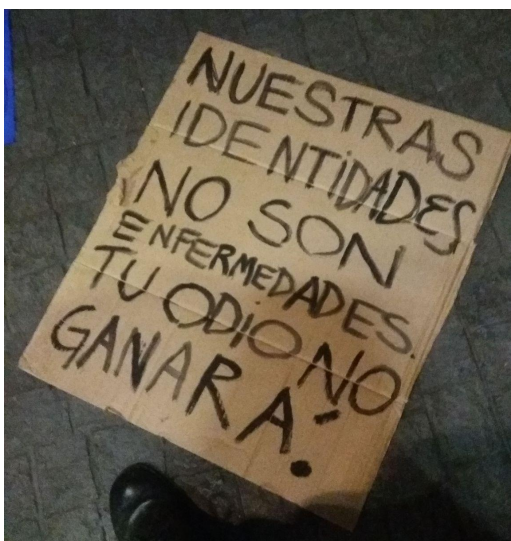 NUESTRAS
IDENTIDADES
NO SON
ENFERMEDADES.
TU ODIO NO
GANARÁ.